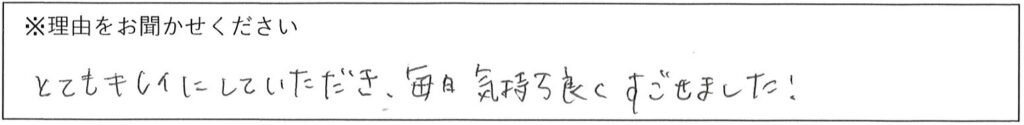 ※理由をお聞かせください
とてもキレイにしていただき、毎日気持ち良くすごせました！